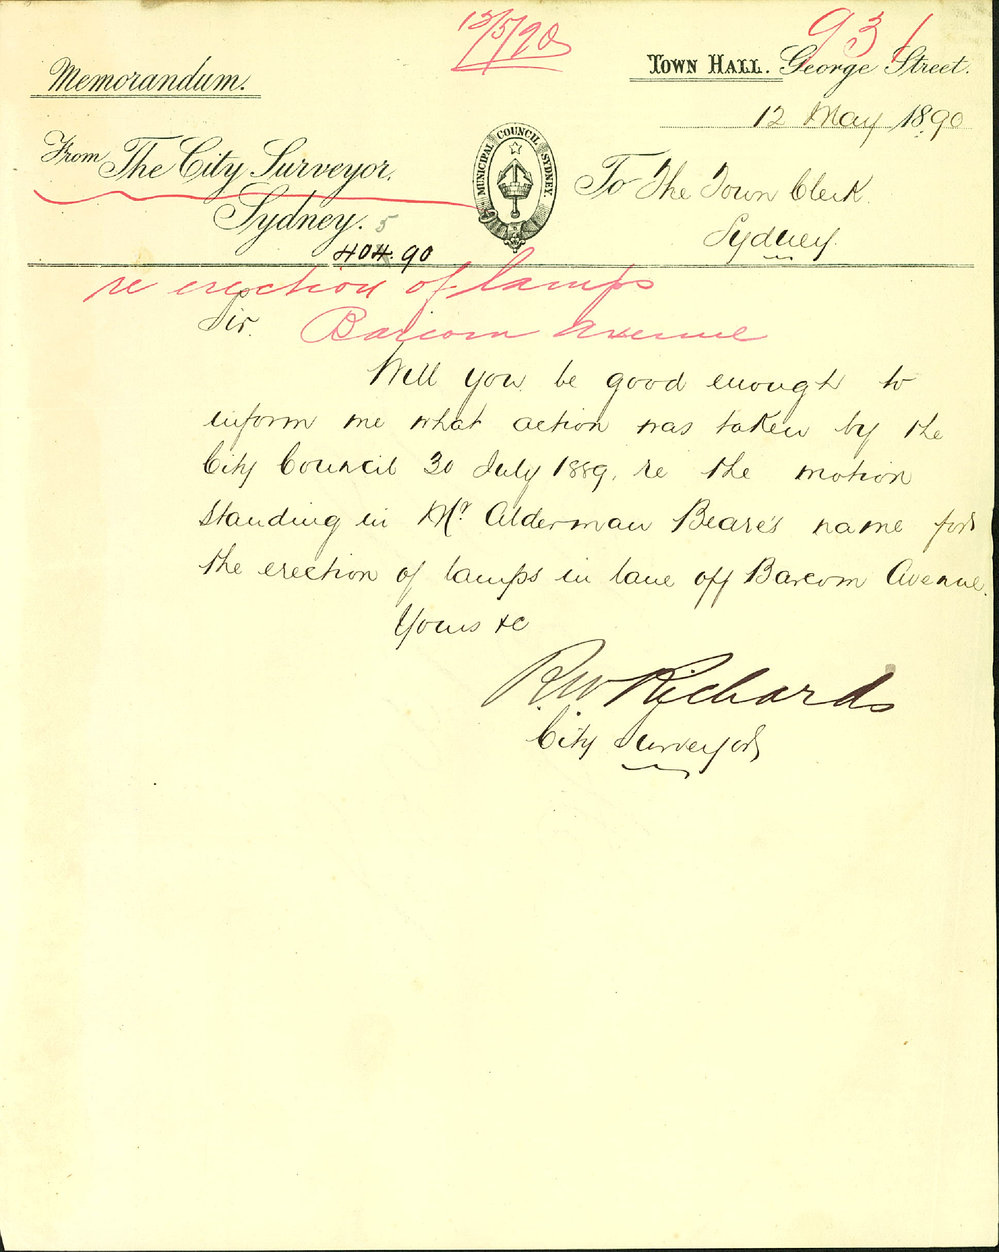 13/5/90
931
Memorandum.
Town Hall. George Street.
12 May 1890
From The City Surveyor.
Sydney.
5
404.90
MUNICIPAL COUNCIL SYDNEY.
To The Town Clerk.
Sydney.
re erection of lamps
Barcom Avenue
Sir.
Will you be good enough to
inform me what action was taken by the
City Council 30 July 1889, re the motion
standing in Mr. Alderman Beare's name for
the erection of lamps in lane off Barcom Avenue.
Yours &c
R.W Richards
City Surveyor